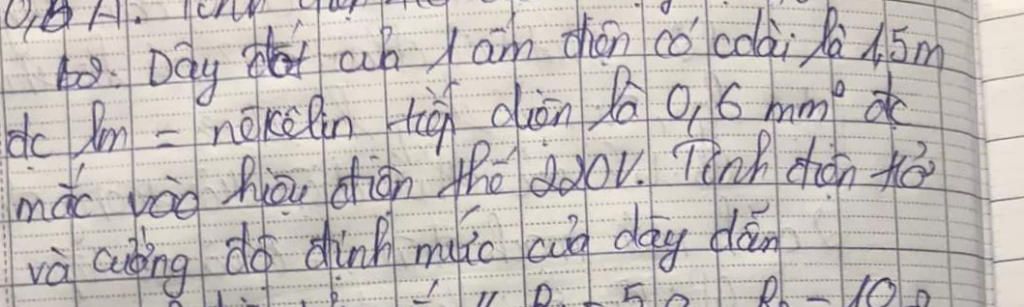 0,5 A. Tính
b9: Dây đốt của 1 ấm điện có cdài là 1,5m
đc lm = nêkêlin tiết diện là 0,6 mm² đc
mắc vào hiệu điện thế 220V. Tính điện trở
và cường độ định mức của dây dẫn
= 5 R₂ = 10